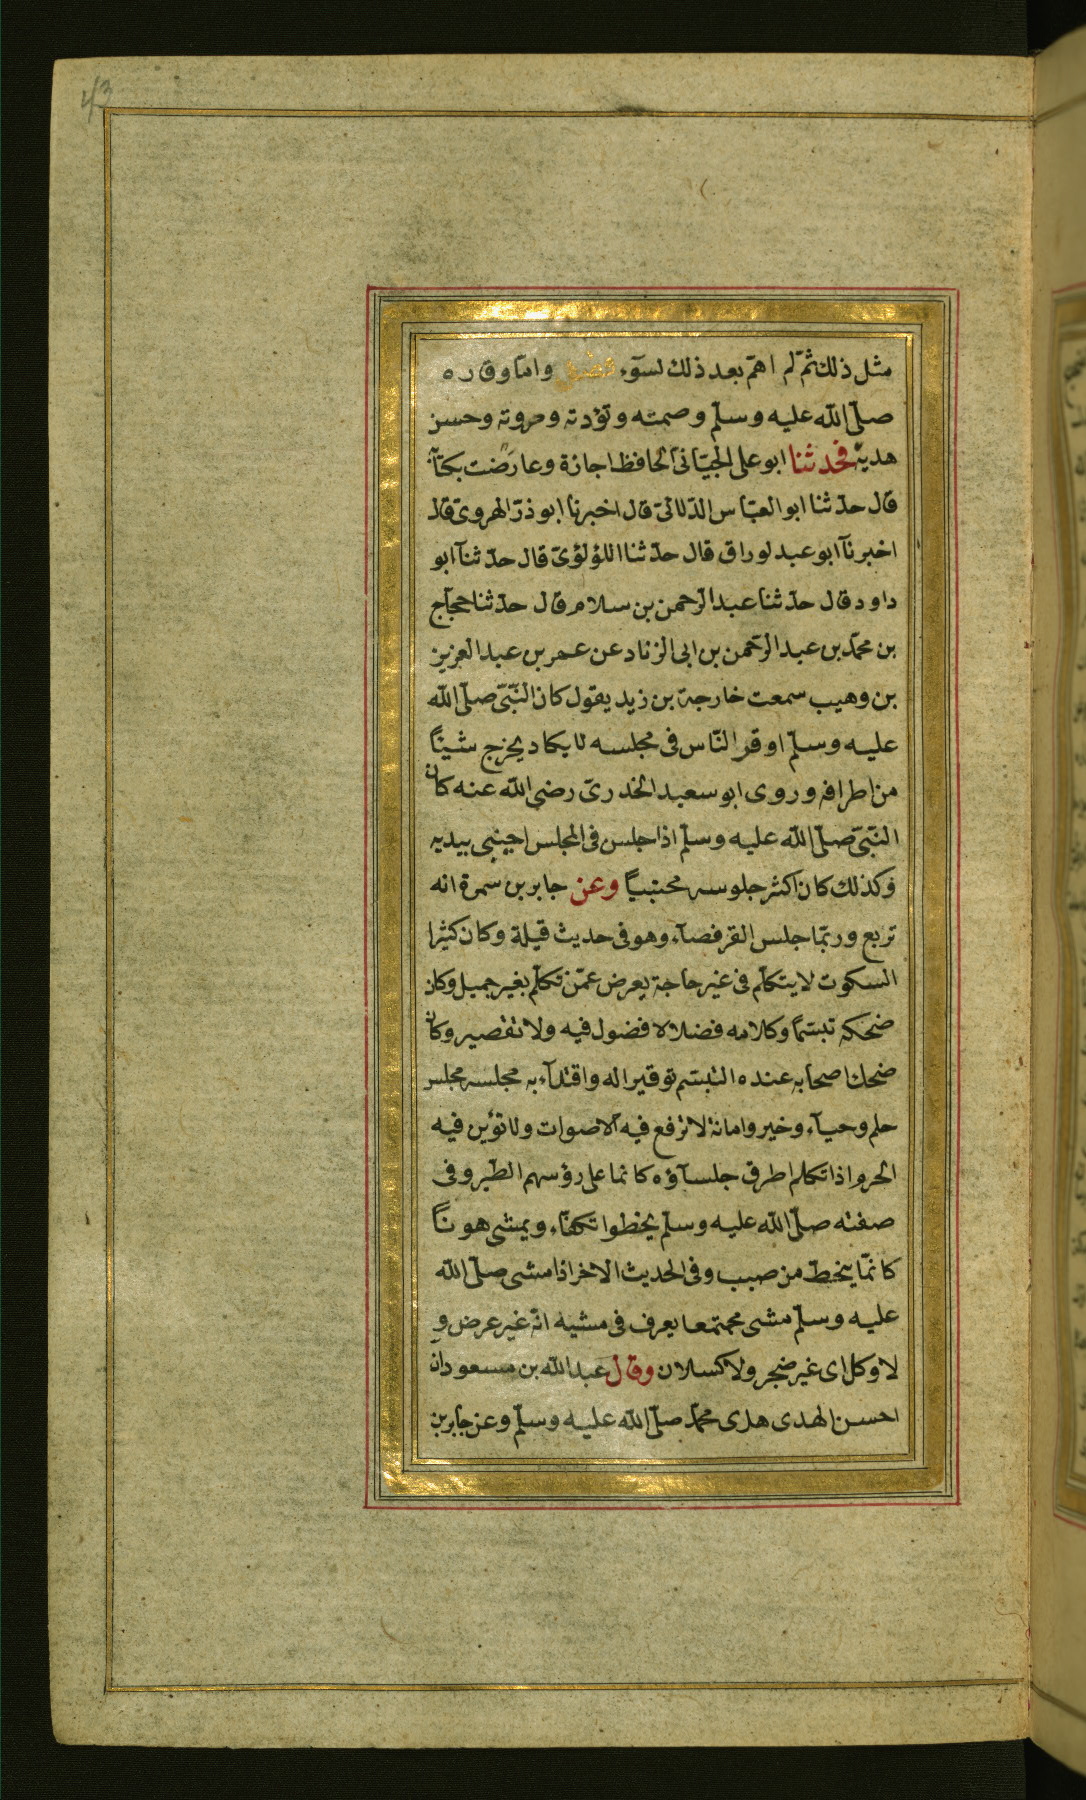 43
مثل ذلك ثمّ لم اهمّ بعد ذلك لسوٓء فصل وامّا وقاره
صلّى اللّه عليه وسلّم وصمته وتؤدته ومروته وحسن
هديه فحدثنا ابو على الجيّانى الحافظ اجازة وعارضت بكتابه
قال حدّثنا ابو العبّاس الدّلائىّ قال اخبرنا ابو ذرّ الهروىّ قال
اخبرنآ ابو عبد لوراق قال حدّثنا اللؤلؤىّ قال حدّثنآ ابو
داود قال حدّثنا عبد الرّحمن بن سلام قال حدّثنا حجّاج
بن محمّد بن عبد الرّحمن بن ابى الزناد عن عمر بن عبد العزيز
بن وهيب سمعت خارجة بن زيد يقول كان النّبىّ صلّى اللّه
عليه وسلّم اوقر النّاس فى مجلسه لا يكاد يخرج شيئًا
من اطرافه وروى ابو سعيد الخدرىّ رضى اللّه عنه كان
النّبىّ صلّى اللّه عليه وسلّم اذا جلس فى المجلس احتبى بيديه
وكذلك كان اكثر جلوسه محتبيًا وعن جابر بن سمرة انه
تربع وربّما جلس القرفصآء وهو فى حديث قيلة وكان كثيرا
السكوت لا يتكلّم فى غير حاجة يعرض عمّن تكلّم بغير جميل وكان
ضحكه تبسّما وكلامه فضلا لا فضول فيه ولا تقصير وكان
ضحك اصحابه عنده التبسّم توقيرا له واقتدآء به مجلسه مجلس
حلم وحيآء وخير وامانة لا ترفع فيه الاصوات ولا تؤبن فيه
الحرم اذا تكلم اطرق جلسآؤه كانما على رؤسهم الطّير وفى
صفته صلّى اللّه عليه وسلّم يخطوا تكفّاء ويمشى هونًا
كانّما ينحطّ من صبب وفى الحديث الاخر اذا مشى صلّى اللّه
عليه وسلّم مشى مجتمعا يعرف فى مشيه انّه غير عرض و
لا وكل اى غير ضجر ولا كسلان وقال عبد اللّه بن مسعود انّ
احسن الهدى هدى محمّد صلّى اللّه عليه وسلّم وعن جابر بن